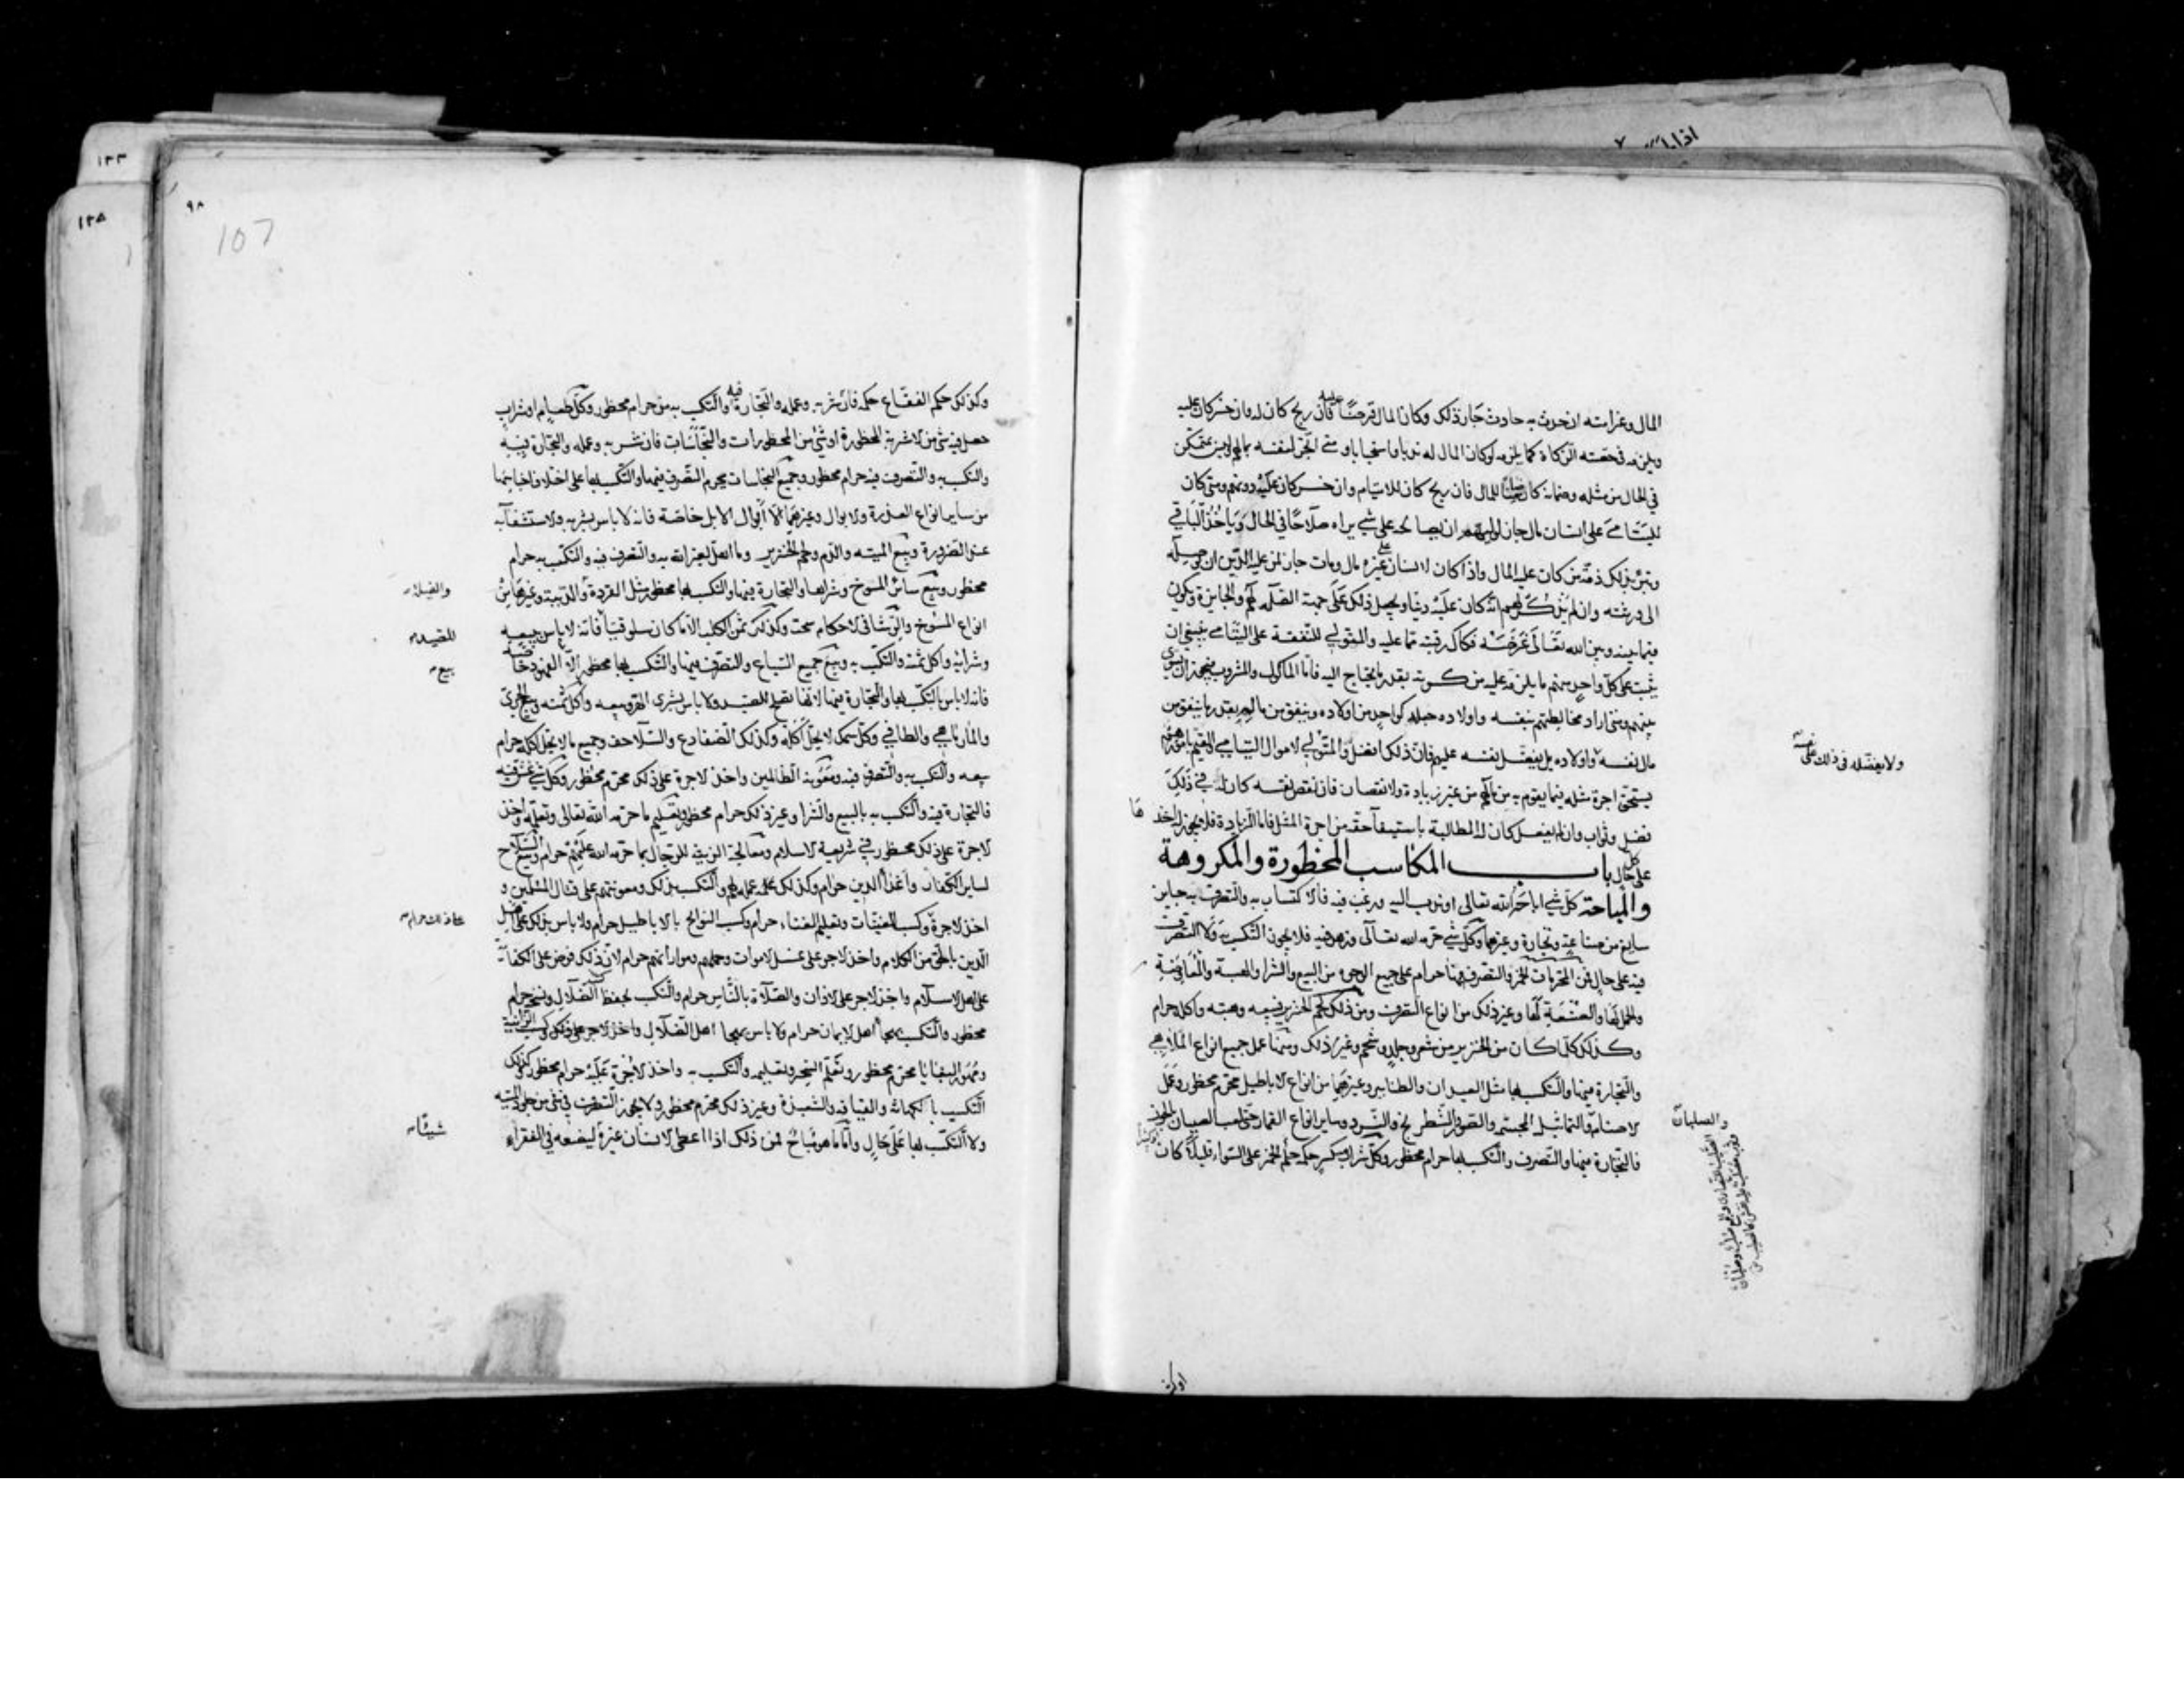 المال وغرامته ان حدث به حادث جاز ذلك وكان المال قرضا عليه فان ربح كان له وان خسر كان عليه
ويلزمه في حصته الزكاة كما يلزمه لو كان المال له ندبا واستحبابا ومتى اتجر لنفسه بمالهم وليس بمتمكن
في الحال من مثله وضمانه كان ضامنا للمال فان ربح كان للايتام وان خسر كان عليه دونهم ومتى كان
لليتامى على انسان مال جاز لوليهم ان يصالحه على شي يراه صلاحا في الحال وياخذ الباقي
وتبرئ بذلك ذمة من كان عليه المال واذا كان لانسان على غيره مال ومات جاز لمن عليه الدين ان يوصله
الى ورثته وان لم يذكر لهم انه كان عليه دينا ويجعل ذلك على جهة الصلة لهم والجايزة ويكون
فيما بينه وبين الله تعالى غرضه فكاك رقبته مما عليه والمتولي للنفقة على اليتامى ينبغي ان
يثبت على كل واحد منهم ما يلزمه عليه من كسوته بقدر ما يحتاج اليه فاما الماكول والمشروب فيجوز ان يسوى
بينهم ومتى اراد مخالطتهم بنفسه واولاده جعله كواحد من اولاده وينفق من ماله بقدر ما ينفق من
مال نفسه واولاده بل يفضل نفسه عليهم فان ذلك افضل والمتولي لاموال اليتامى القيم بامورهم
ولا يفضله في ذلك على نفسه
يستحق اجرة مثله فيما يقوم به من مالهم من غير زيادة ولا نقصان فان نقص نفسه كان له في ذلك
فضل وثواب وان لم يفعل كان له المطالبة باستيفاء حقه من اجرة المثل فاما الزيادة فلا يجوز له اخذها
على كل حال باب المكاسب المحظورة والمكروهة
والمباحة كل شي اباحه الله تعالى او ندب اليه ورغب فيه فالاكتساب به والتصرف به جايز
سايغ من صناعة وتجارة وغيرهما وكل شي حرمه الله تعالى وزهد فيه فلا يجوز التكسب به ولا التصرف
فيه على حال فمن المحرمات الخمر والتصرف فيها حرام على جميع الوجوه من البيع والشرا والهبة والمعاوضة
والحمل لها والصنعة لها وغير ذلك من انواع التصرف ومن ذلك لحم الخنزير فبيعه وهبته واكله حرام
وكذلك كلما كان من الخنزير من شعر وجلد وشحم وغير ذلك ومنها عمل جميع انواع الملاهي
والتجارة فيها والتكسب بها مثل العيدان والطنابير وغيرهما من انواع الاباطيل محرم محظور وعمل
الاصنام والتماثيل المجسمه والصور والشطرنج والنرد وساير انواع القمار حتى لعب الصبيان بالجوز
والصلبان
فالتجارة فيها والتصرف والتكسب بها حرام محظور وكل شراب مسكر حكمه حكم الخمر على السواء قليلا كان
او كثيرا
٩٨
107
١٢٣
١٢٨
وكذلك حكم الفقاع حكمه فان شربه وعمله والتجارة فيه والتكسب به حرام محظور وكل طعام او شراب
حصل فيه شي من الاشربة المحظورة او شي من المحظورات والنجاسات فان شربه وعمله والتجارة فيه
والتكسب به والتصرف فيه حرام محظور وجميع النجاسات يحرم التصرف فيها والتكسب بها على اختلاف اجناسها
من ساير انواع العذرة والابوال وغيرهما الا ابوال الابل خاصة فانه لا باس بشربه والاستشفاء به
عند الضرورة وبيع الميته والدم ولحم الخنزير وما اهل لغير الله به والتصرف فيه والتكسب به حرام
محظور وبيع سائر المسوخ وشراءها والتجارة فيها والتكسب بها محظور مثل القردة والدببة وغيرهما من
والفيلة
انواع المسوخ والرشا في الاحكام سحت وكذلك ثمن الكلب الا ما كان سلوقيا فانه لا باس ببيعه
للصيد
وشرائه واكل ثمنه والتكسب به وبيع جميع السباع والتصرف فيها والتكسب بها محظور الا الفهود خاصة
بيع
فانه لا باس بالتكسب بها والتجارة فيها لانها تصلح للصيد ولا باس بشرى الهر وبيعه واكل ثمنه وبيع الجري
والمارماهي والطافي وكل سمك لا يحل اكله وكذلك الضفادع والسلاحف وجميع ما لا يحل اكله حرام
بيعه والتكسب به والتصرف فيه ومعونة الظالمين واخذ الاجرة على ذلك محرم محظور وكل شي غش فيه
فالتجارة فيه والتكسب به بالبيع والشرا وغير ذلك حرام محظور وتعليم ما حرمه الله تعالى وتعلمه واخذ
الاجرة على ذلك محظور في شريعة الاسلام ومعالجة الزينة للرجال بما حرمه الله عليهم حرام وبيع السلاح
لساير الكفار واعداء الدين حرام وكذلك عمله لهم والتكسب بذلك ومعونتهم على قتال المسلمين و
اخذ الاجرة وكسب المغنيات وتعليم الغناء حرام وكسب النوائح بالاباطيل حرام ولا باس بذلك على اهل
على ذلك حرام
الدين بالحق من الكلام واخذ الاجر على غسل الاموات وحملهم ومواراتهم حرام لان ذلك فرض على الكفاية
على اهل الاسلام واخذ الاجر على الاذان والصلاة بالناس حرام والتكسب بحفظ كتب الضلال ونسخه حرام
محظور والتكسب بهجاء اهل الايمان حرام ولا باس بهجا اهل الضلال واخذ الاجر على ذلك وكسب الزانية
ومهور البغايا محرم محظور وتعلم السحر وتعليمه والتكسب به واخذ الاجرة عليه حرام محظور كذلك
التكسب بالكهانة والقيافه والشعبذة وغير ذلك محرم محظور ولا يجوز التصرف في شي من جلود الميتة
ولا التكسب بها على حال واما ما هو مباح فمن ذلك اذا اعطى الانسان غيره ليضعه في الفقراء
شيئا